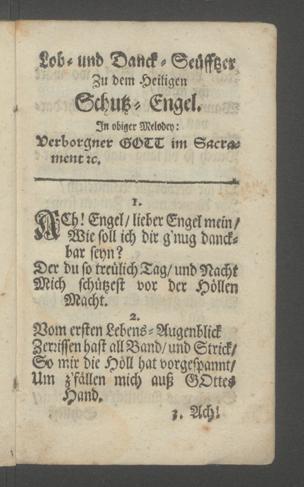 Lob- und Danck-Seüfftzer
Zu dem Heiligen
Schutz-Engel.
In obiger Melodey:
Verborgner GOTT im Sacra-
ment ꝛc.
1.
ACh! Engel/ lieber Engel mein/
Wie soll ich dir g'nug danck-
bar seyn?
Der du so treülich Tag/ und Nacht
Mich schützest vor der Höllen
Macht.
2.
Vom ersten Lebens-Augenblick
Zerrissen hast all Band/ und Strick/
So mir die Höll hat vorgespannt/
Um z'fällen mich auß GOttes
Hand.
3. Ach!